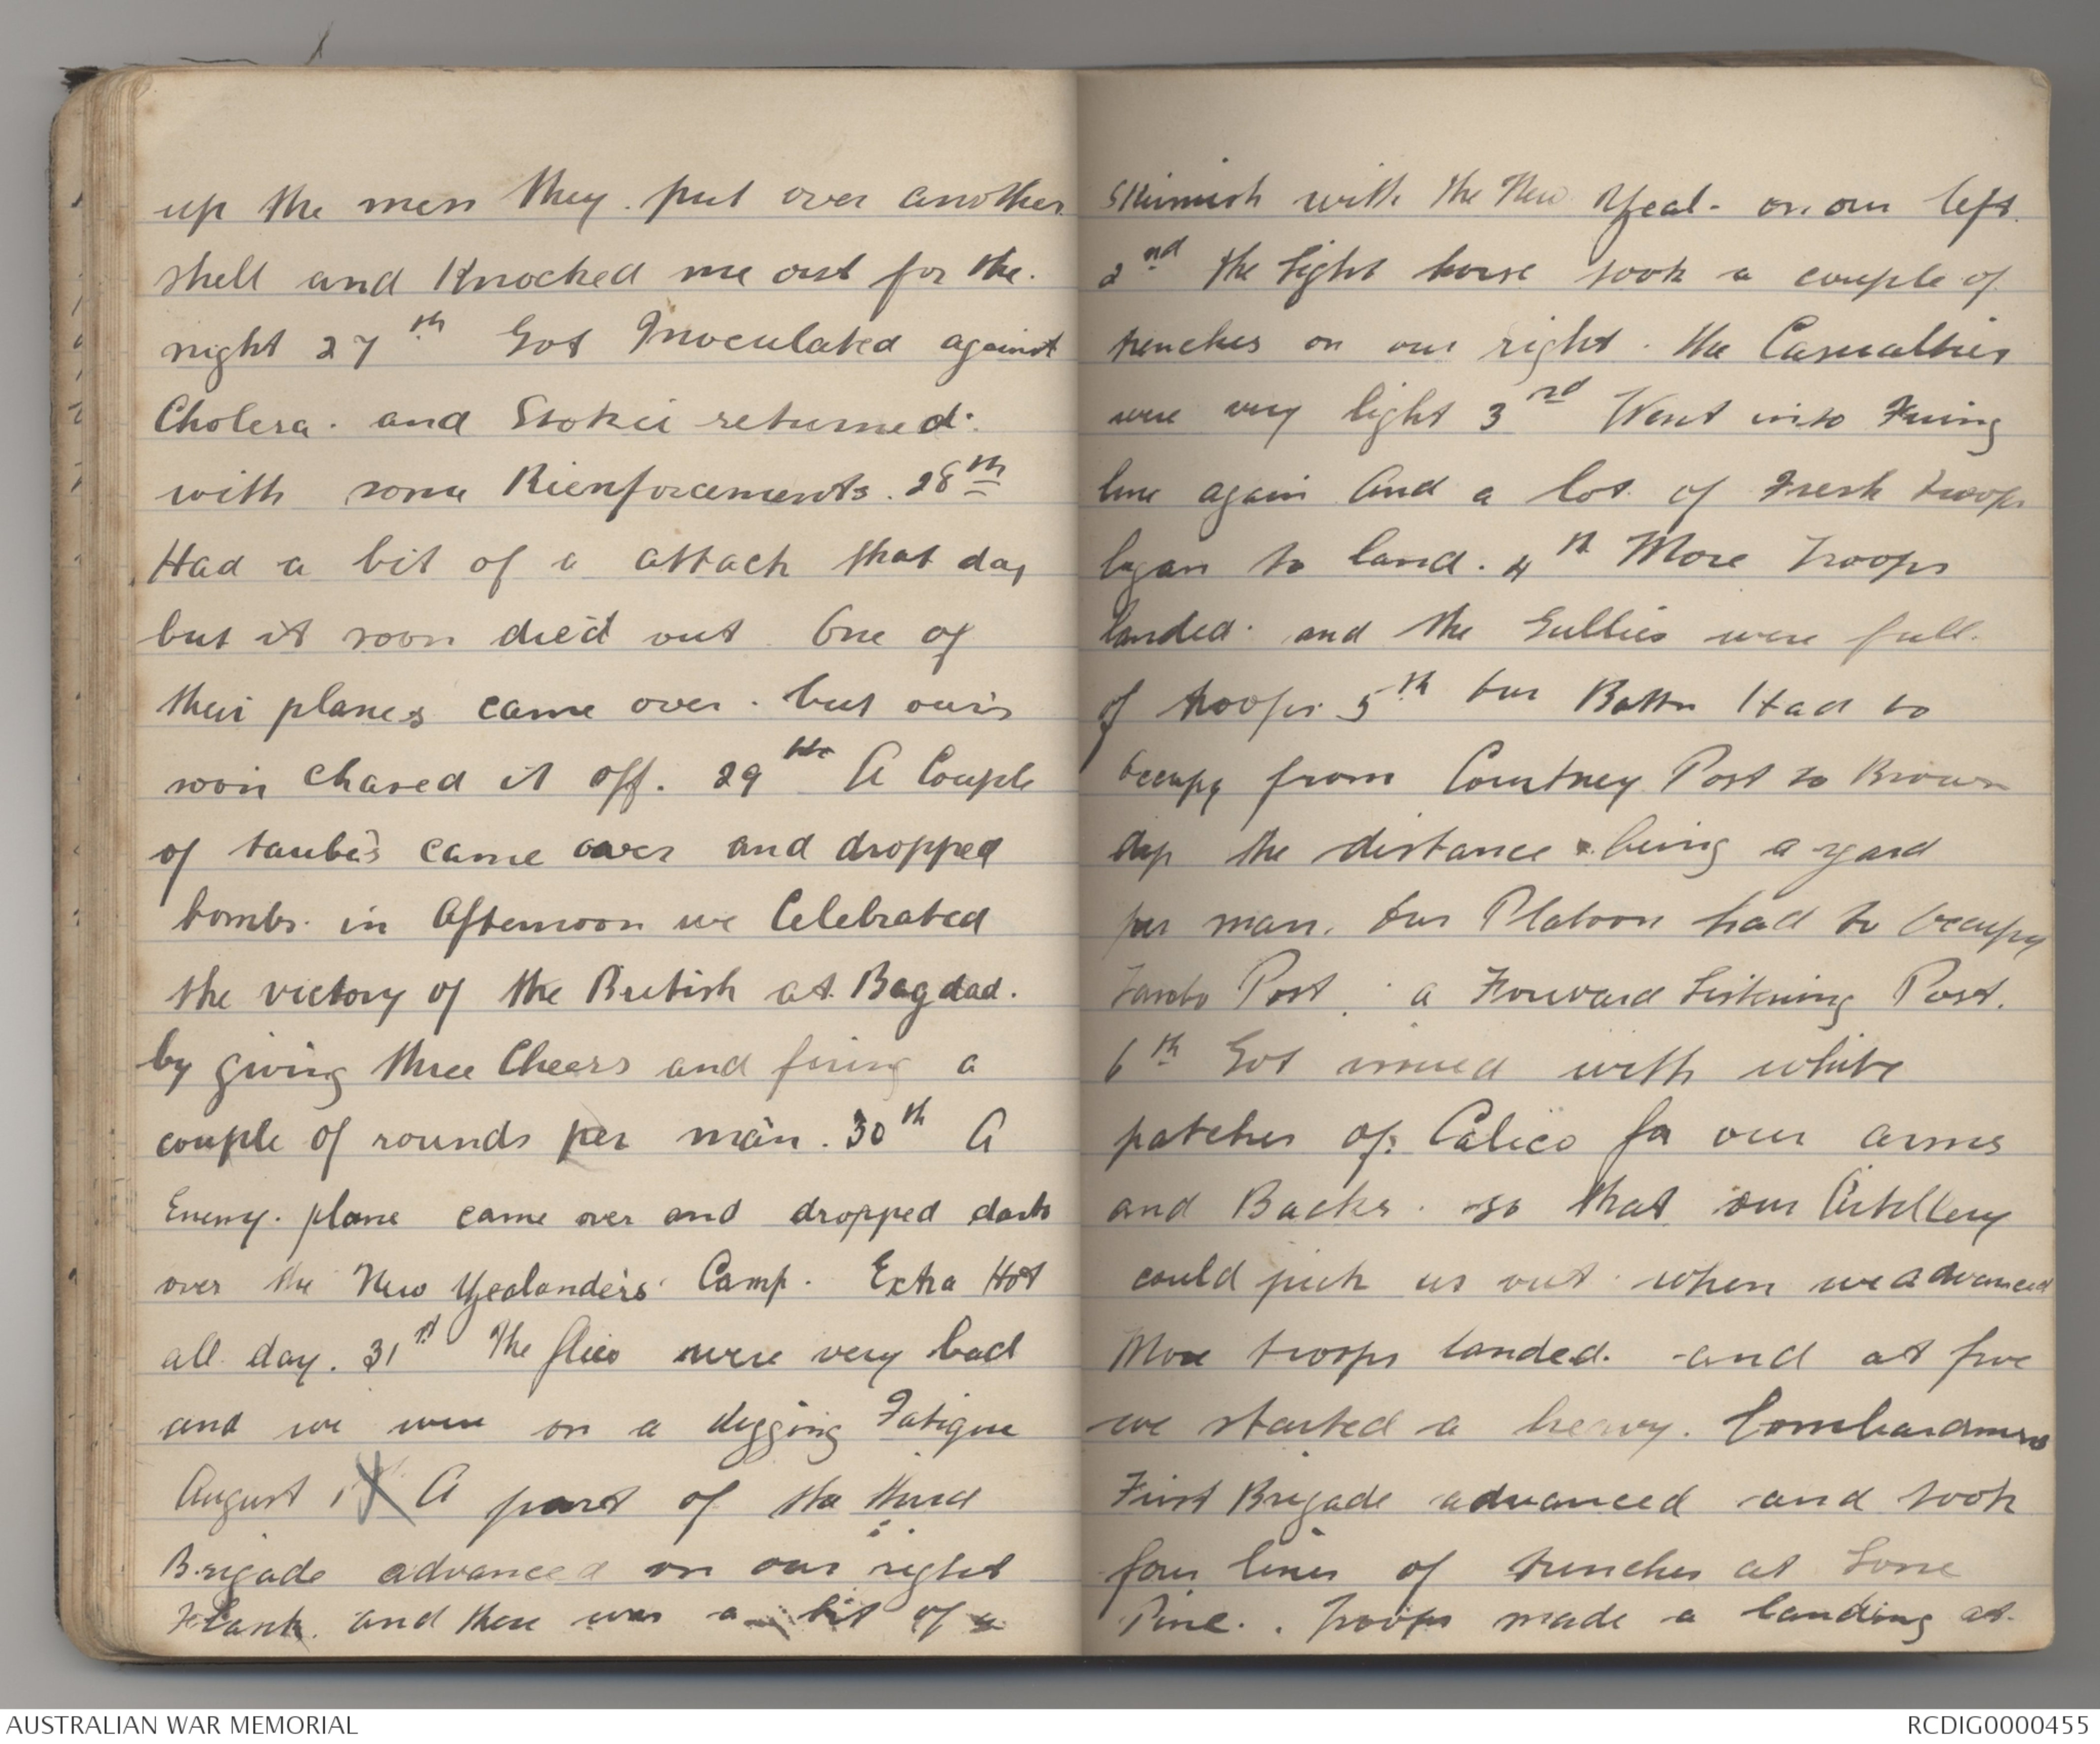 up the men they put over another
shell and Knocked me out for the.
night 27th Got Inoculated against
Cholera. and Stokes returned.
with some Rienforcements. 28th
Had a bit of a attack that day
but it soon died out One of
their planes came over. but ours
soon chased it off. 29th A Couple
of taube's came over and dropped
bombs. in Afternoon we Celebrated
the victory of the British at Bagdad.
by giving three Cheers and firing a
couple of rounds per man. 30th A
Enemy. plane came over and dropped darts
over the New Zealanders Camp. Extra Hot
all day. 31st The flies were very bad
and we were on a digging Fatigue
August 1 A part of the third
Brigade advanced on our right
Flank. and there was a bit of a
Skirmish with the New Zeal- on our left.
2nd the light horse took a couple of
trenches on our right. the Casualties
were very light 3rd Went into Firing
line again and a lot of Fresh troops
began to land. 4th More Troops
landed. and the Gullies were full.
of troops. 5th Our Battn Had to
Occupy from Courtney Post to Brown
dip the distance being a yard
per man. Our Platoon had to Occupy
Post. a Forward Listening Post.
6th Got issued with white
patches of Calico for our arms
and Backs. so that our Artillery
could pick us out when we advanced
More troops landed. and at five
we started a heavy. Bombardment
First Brigade advanced and took
four lines of trenches at Lone
Pine. . Troops made a landing at